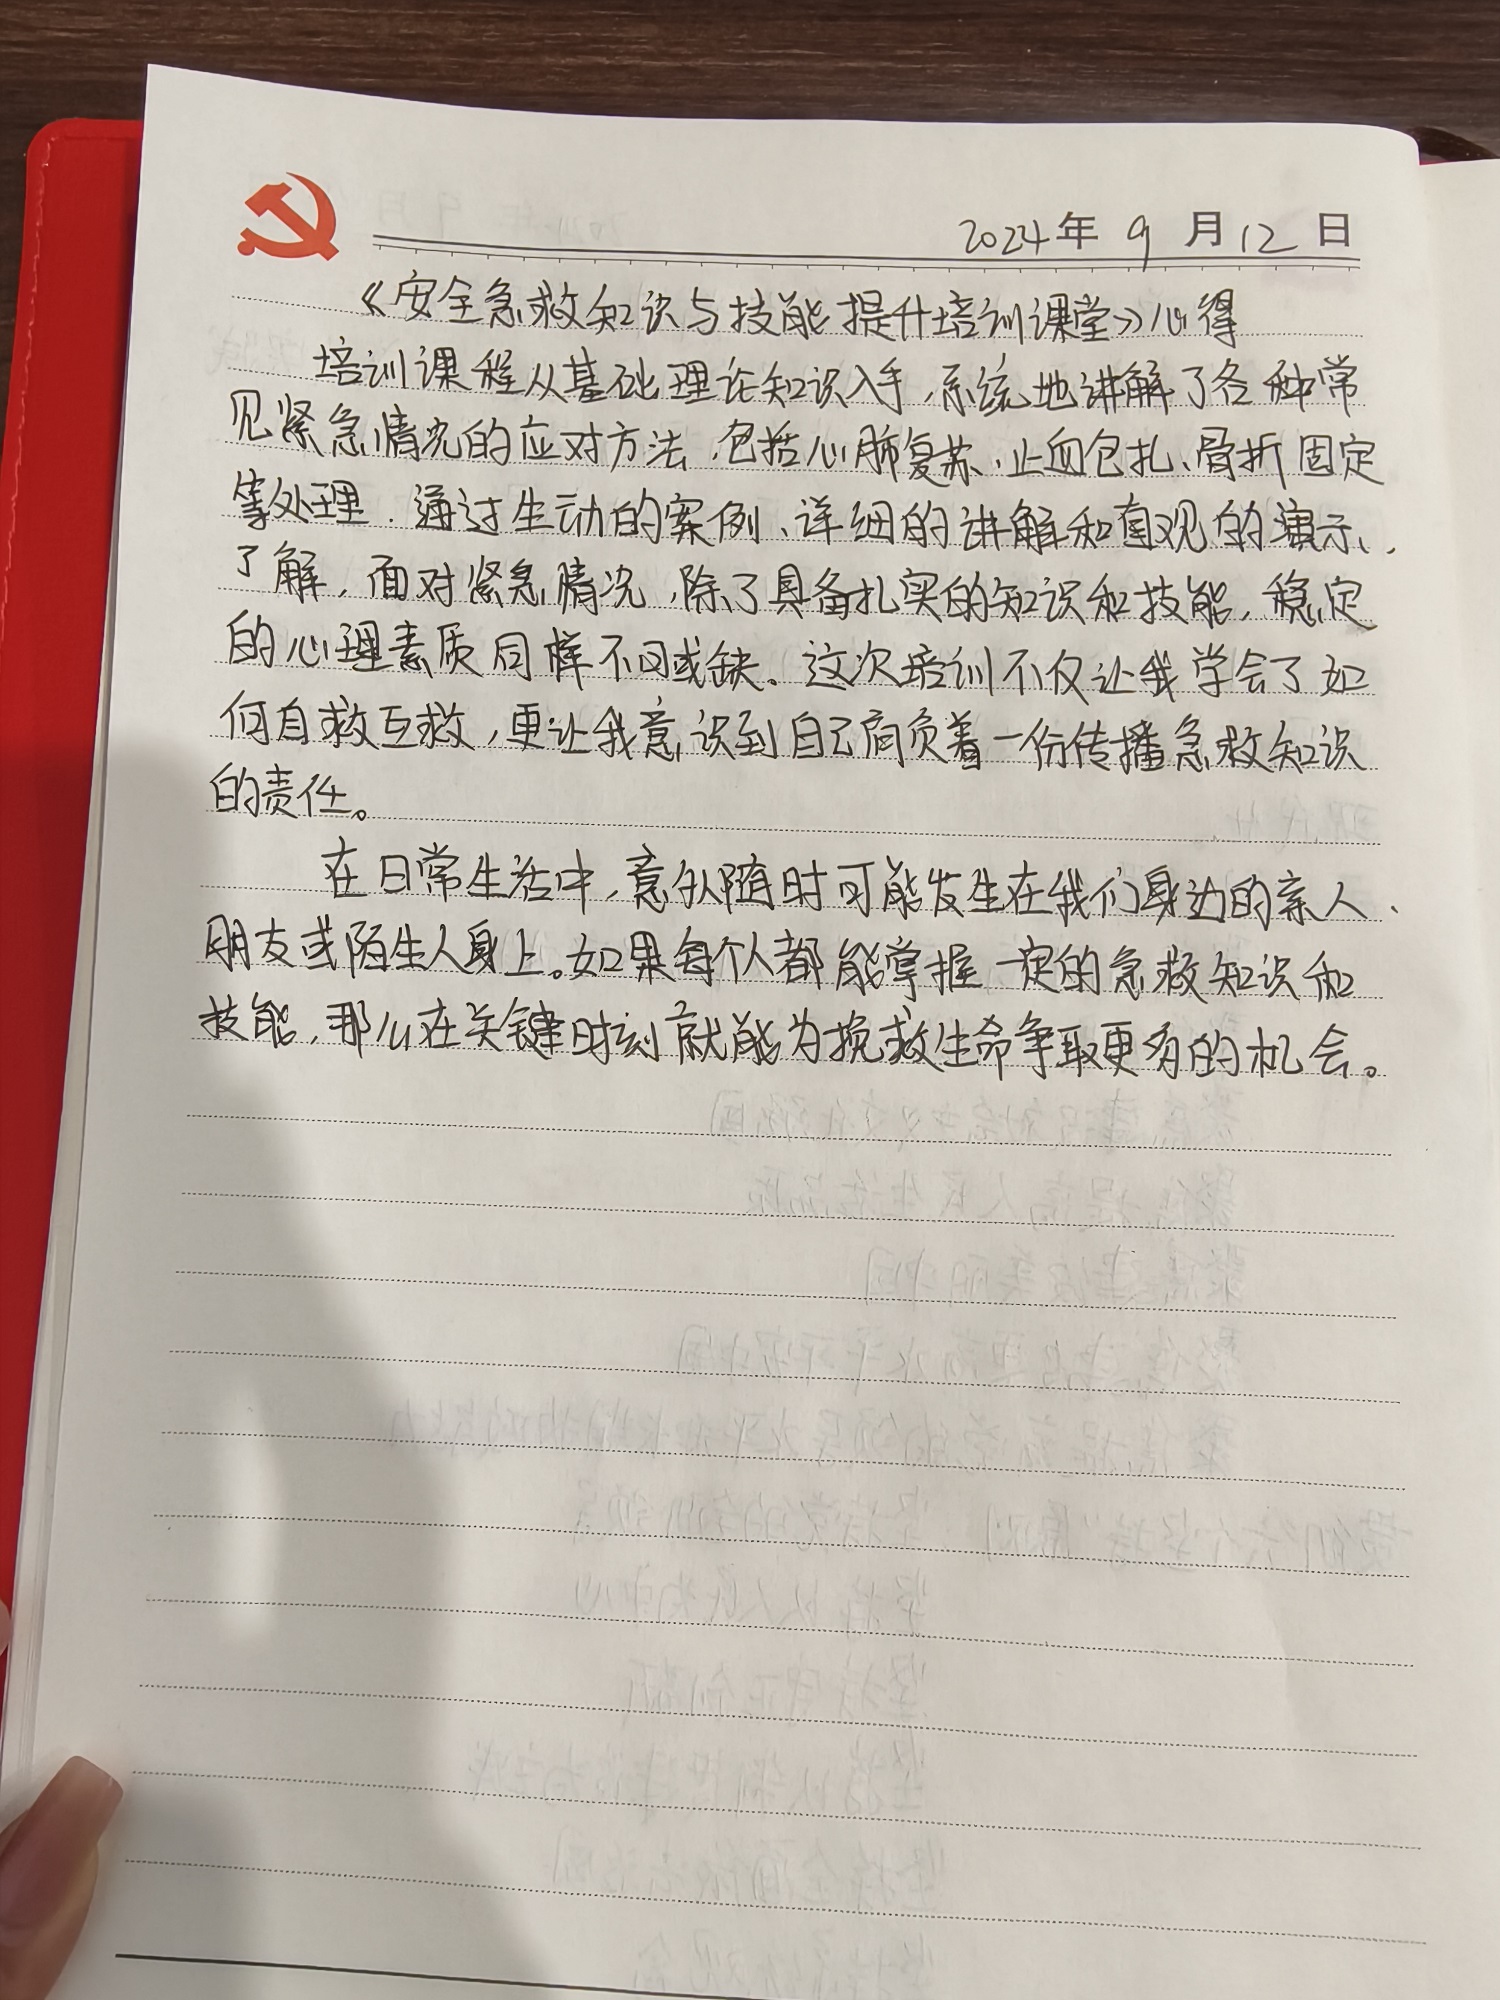 2024年9月12日
《安全急救知识与技能提升培训课堂》心得
培训课程从基础理论知识入手,系统地讲解了各种常
见紧急情况的应对方法,包括心肺复苏、止血包扎、骨折固定
等处理.通过生动的案例、详细的讲解和直观的演示,
了解,面对紧急情况,除了具备扎实的知识和技能,稳定
的心理素质同样不可或缺。这次培训不仅让我学会了如
何自救互救,更让我意识到自己肩负着一份传播急救知识
的责任。
在日常生活中,意外随时可能发生在我们身边的亲人、
朋友或陌生人身上。如果每个人都能掌握一定的急救知识和
技能,那么在关键时刻就能为挽救生命争取更多的机会。